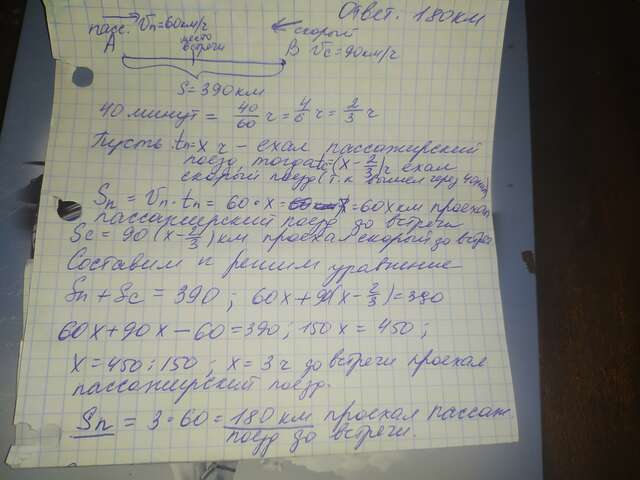 Ответ. 180 км
пасс. Vп=60км/ч
место встречи
скорый
A
B Vс=90км/ч
S=390км
40 минут = 40/60 ч = 4/6 ч = 2/3 ч
Пусть tп=x ч – ехал пассажирский
поезд, тогда tс=(x-2/3)ч ехал
скорый поезд (т.к вышел через 40мин)
Sп = Vп·tп = 60·x = 60x км проехал
пассажирский поезд до встречи
Sс = 90(x-2/3) км проехал скорый до встречи
Составим и решим уравнение
Sп + Sс = 390; 60x+90(x-2/3)=390
60x+90x-60=390; 150x=450;
x=450:150; x=3ч до встречи проехал
пассажирский поезд.
Sп = 3·60=180 км проехал пассаж.
поезд до встречи.